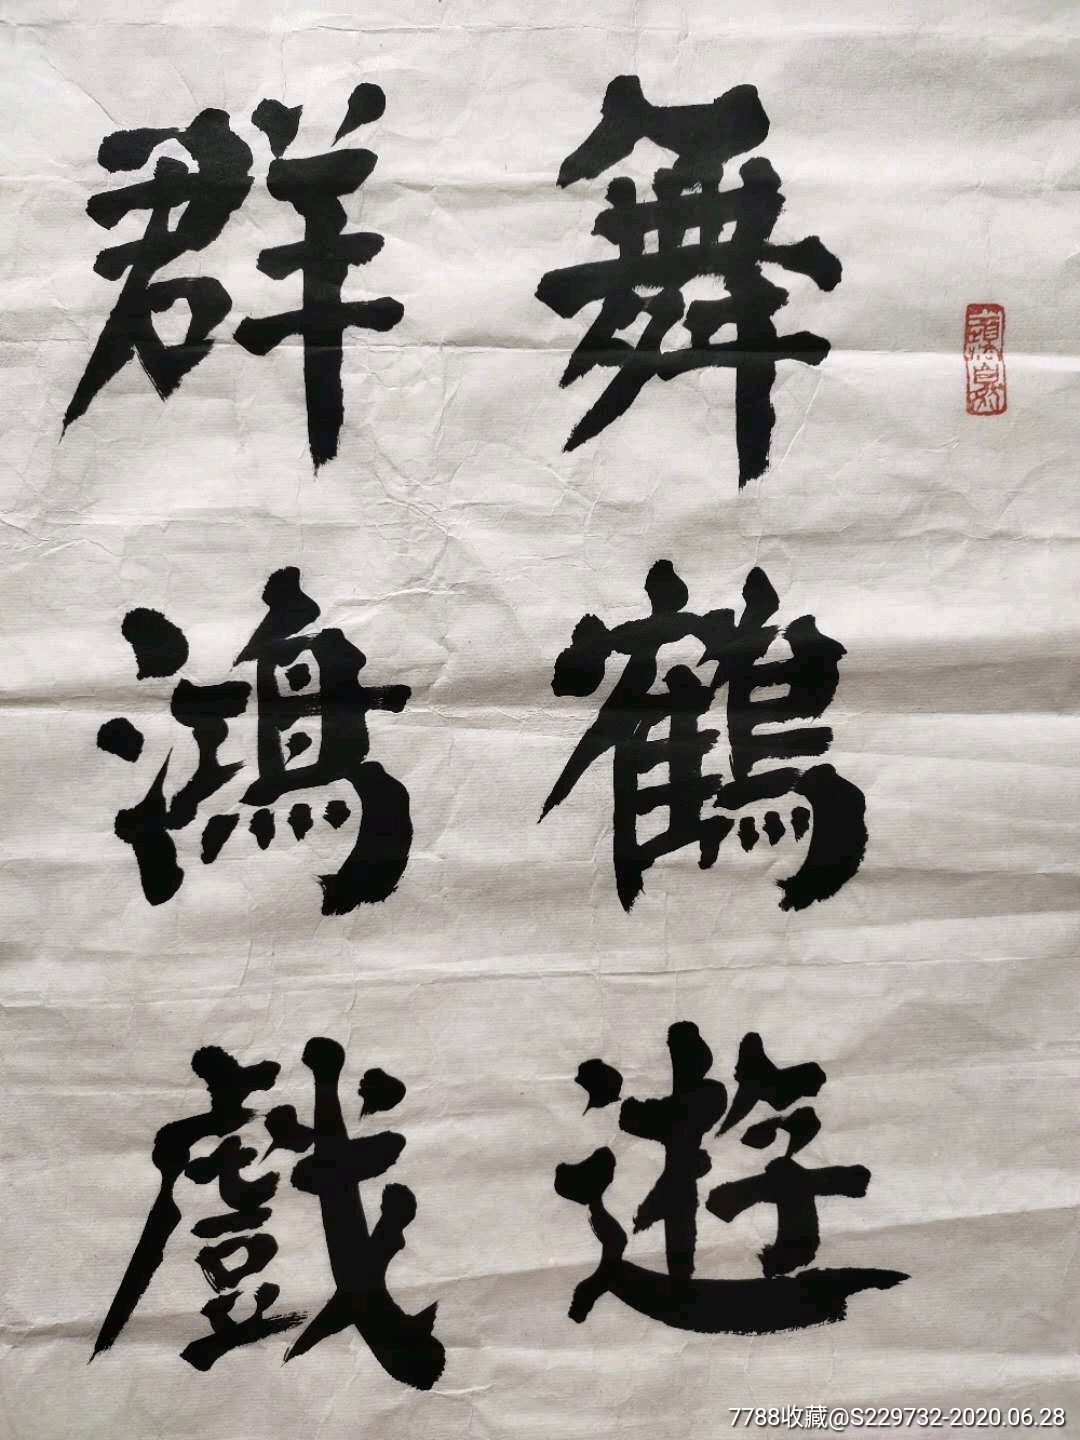 舞鶴遊
群鴻戲
7788收藏@S229732-2020.06.28